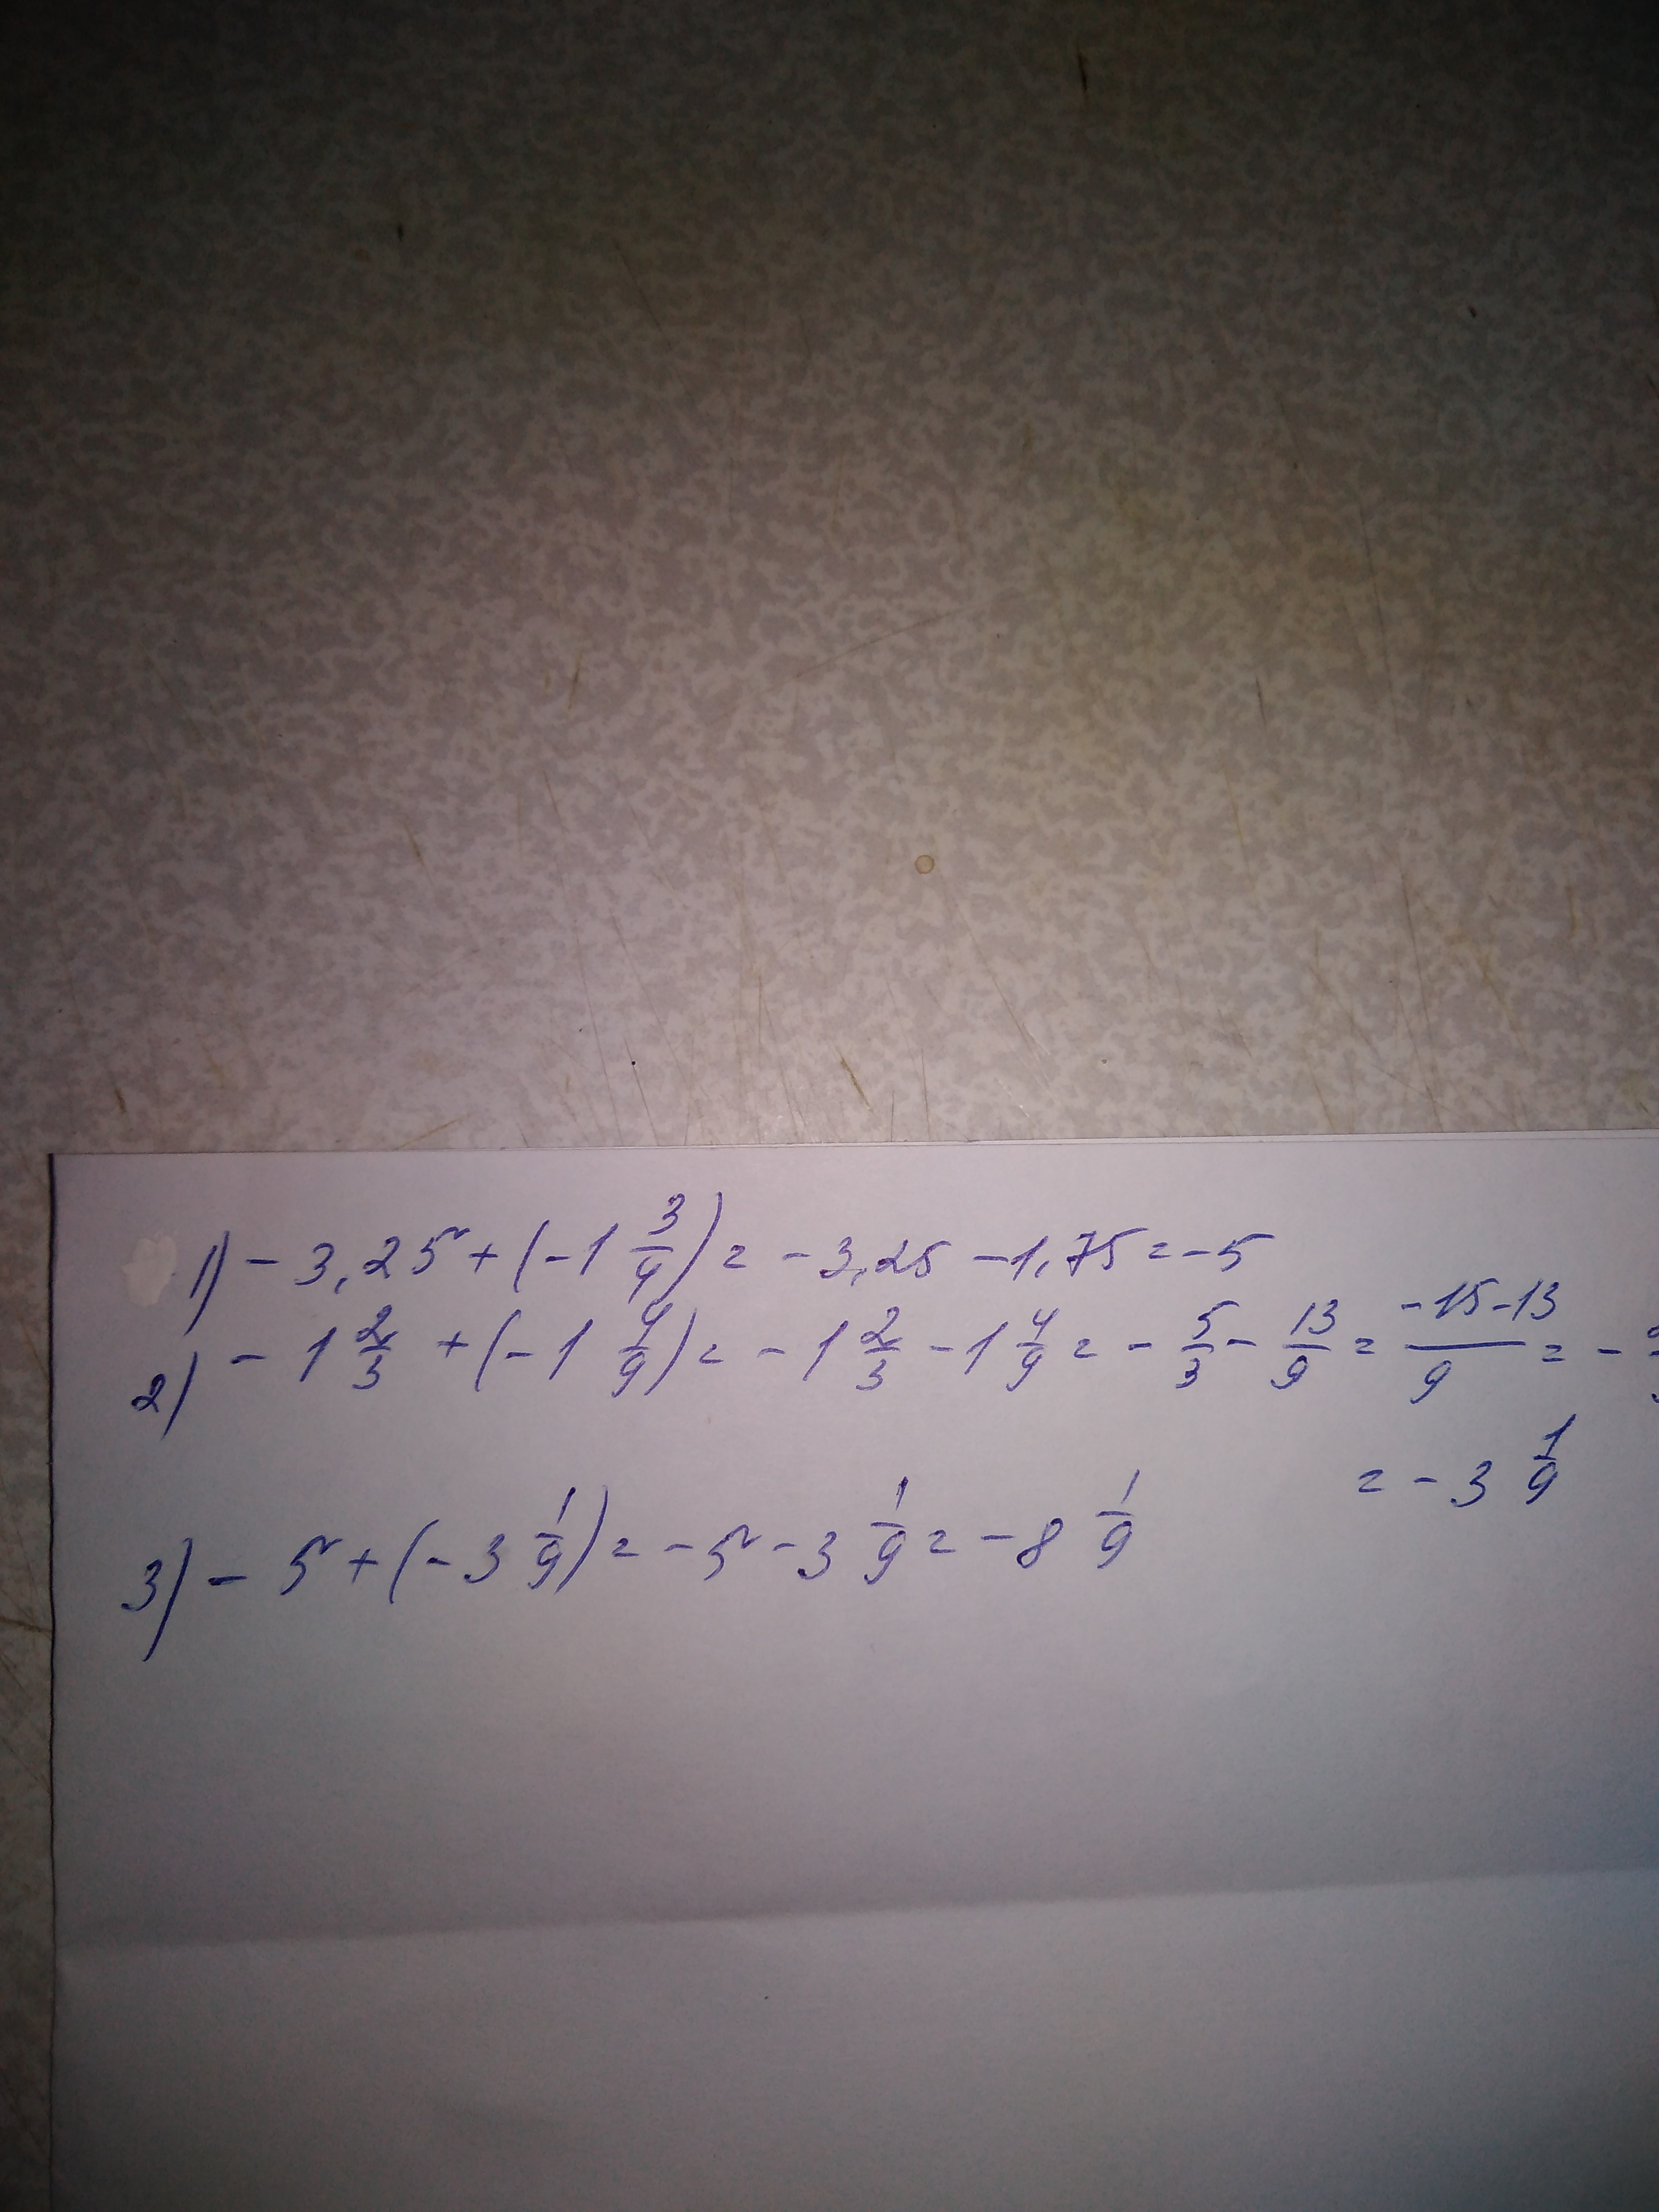 1) - 3,25 + (-1 3/4) = - 3,25 - 1,75 = - 5
2) - 1 2/3 + (-1 4/9) = - 1 2/3 - 1 4/9 = - 5/3 - 13/9 = -15-13/9 = -
= - 3 1/9
3) - 5 + (- 3 1/9) = - 5 - 3 1/9 = - 8 1/9